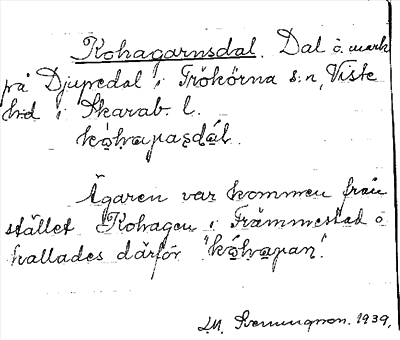 Kohagarnsdal. Dal å mark
på Djupedal i Trökörna s:n, Viste
h:d i Skarab. l.
kɷ̀hɑpaʂdál.
Ägaren var kommen från
stället Kohagen i Främmestad o
kallades därför "kɷ́hɑpan".
Svenungsson. 1939.